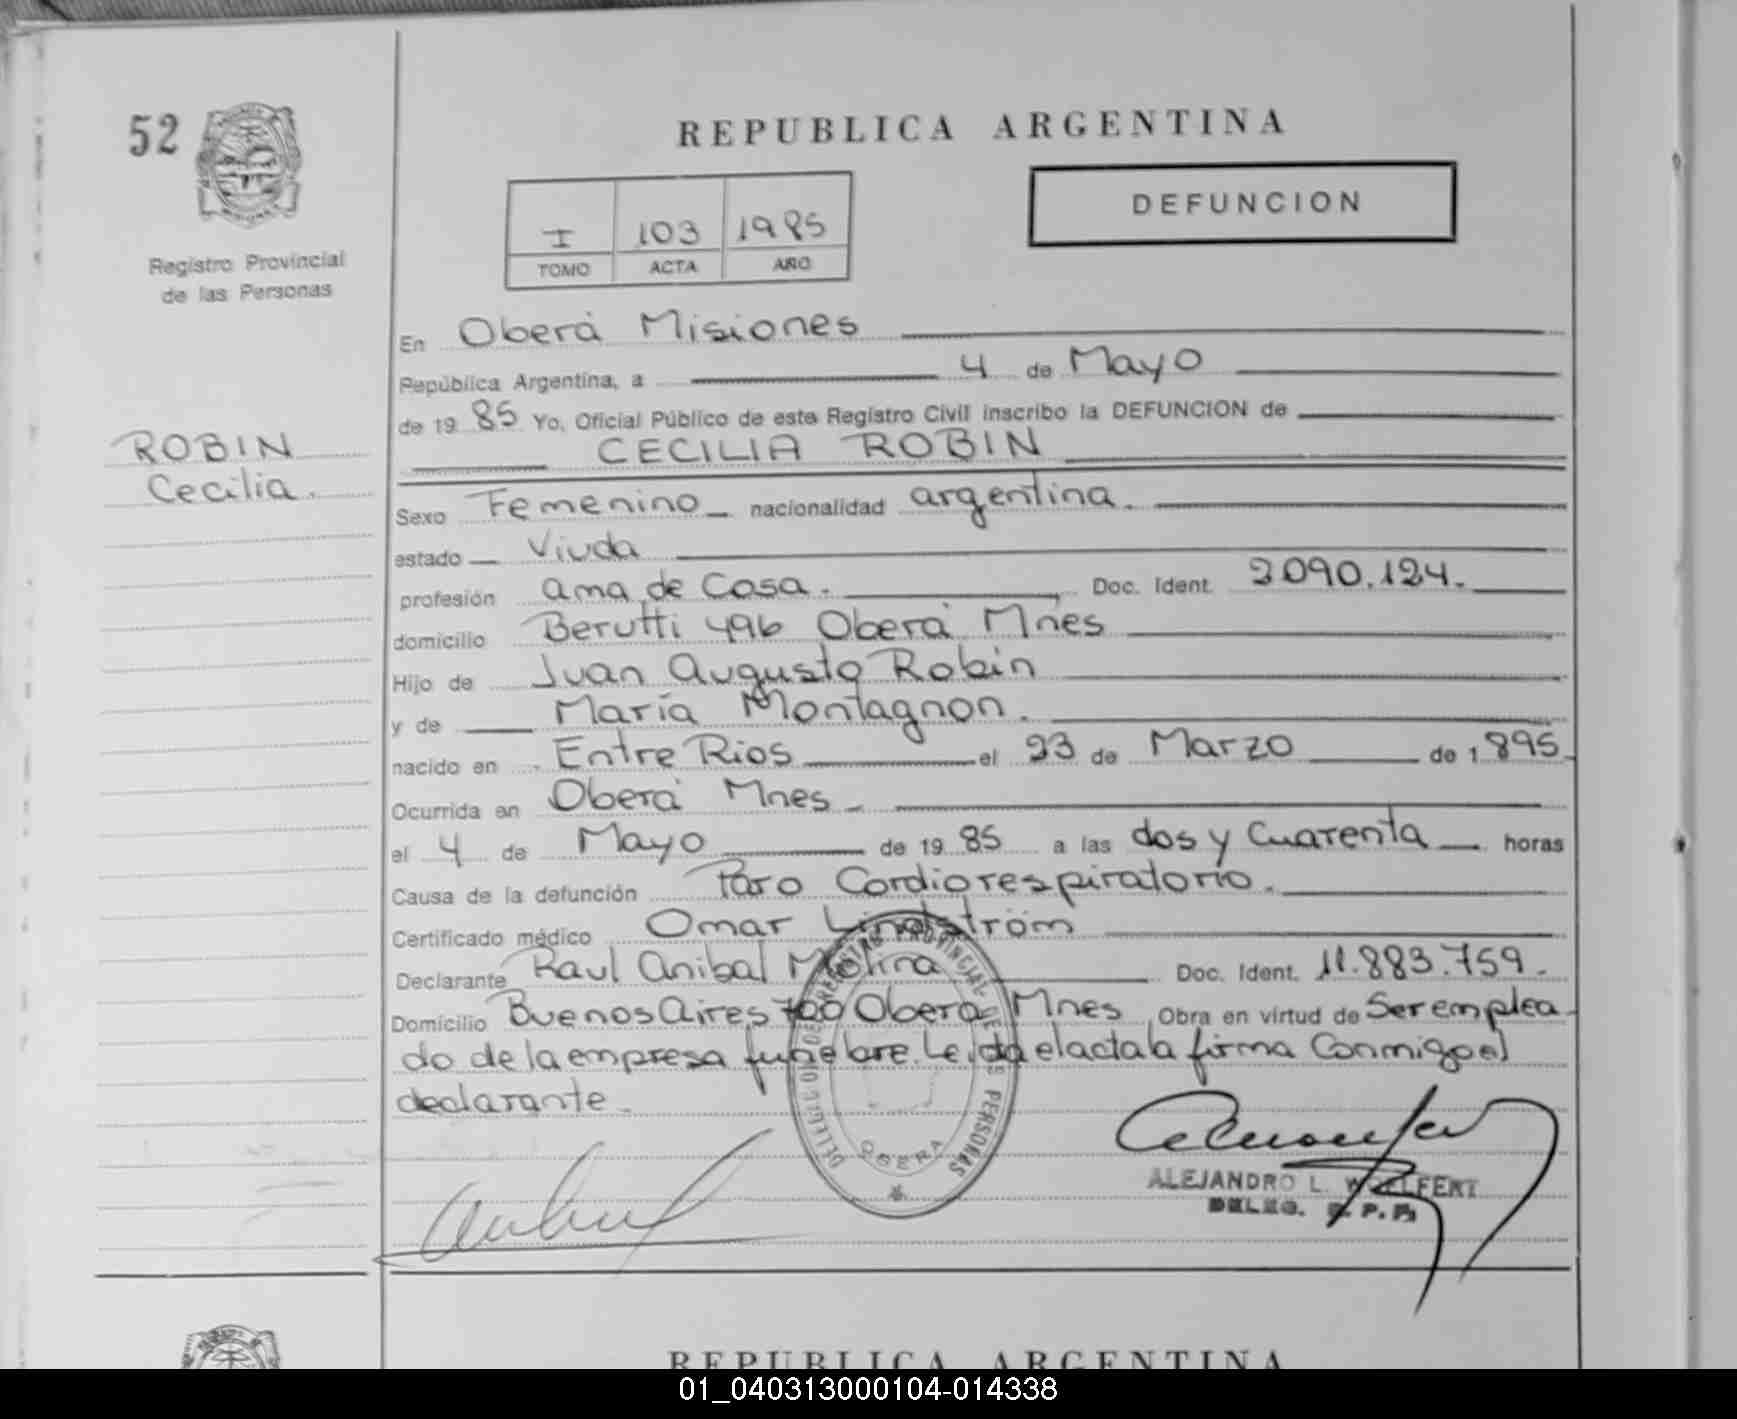 52
REPUBLICA ARGENTINA
DEFUNCION
I 103 1985
TOMO ACTA AÑO
Registro Provincial
de las Personas
En Oberá Misiones
República Argentina, a 4 de Mayo
de 19 85 Yo, Oficial Público de este Registro Civil inscribo la DEFUNCION de
ROBIN
Cecilia.
CECILIA ROBIN
Sexo Femenino nacionalidad argentina.
estado Viuda
profesión ama de Casa. Doc. Ident. 2090.124.
domicilio Berutti 496 Oberá Mnes
Hijo de Juan Augusto Robin
y de María Montagnon.
nacido en Entre Rios el 23 de Marzo de 1895
Ocurrida en Oberá Mnes
el 4 de Mayo de 19 85 a las dos y Cuarenta horas
Causa de la defunción Paro Cardiorespiratorio.
Certificado médico Omar Lindström
Declarante Raul Anibal Molina Doc. Ident. 11.883.759.
Domicilio Buenos Aires 700 Oberá Mnes Obra en virtud de Ser emplea
do de la empresa funebre. Leida el acta la firma Conmigo el
declarante.
DELEGACION DE REGISTRO PROVINCIAL DE LAS PERSONAS
OBERA
ALEJANDRO L. WOLFERT
DELEG. R. P. P.
REPUBLICA ARGENTINA
01_040313000104-014338